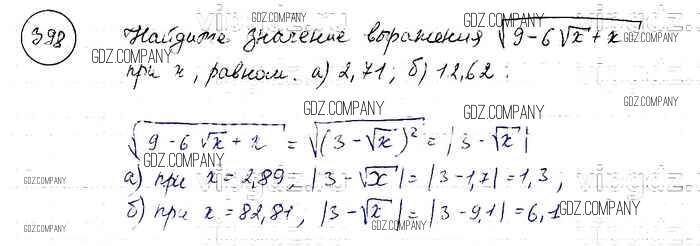 398 Найдите значение выражения √(9-6√x+x)
при x, равном: а) 2,71; б) 12,62:
√(9-6√x+x) = √((3-√x)²) = |3-√x|
а) при x=2,89, |3-√x| = |3-1,7| = 1,3;
б) при x=82,81, |3-√x| = |3-9,1| = 6,1
GDZ.COMPANY
GDZ.COMPANY
GDZ.COMPANY
GDZ.COMPANY
GDZ.COMPANY
GDZ.COMPANY
GDZ.COMPANY
GDZ.COMPANY
GDZ.COMPANY
GDZ.COMPANY
GDZ.COMPANY